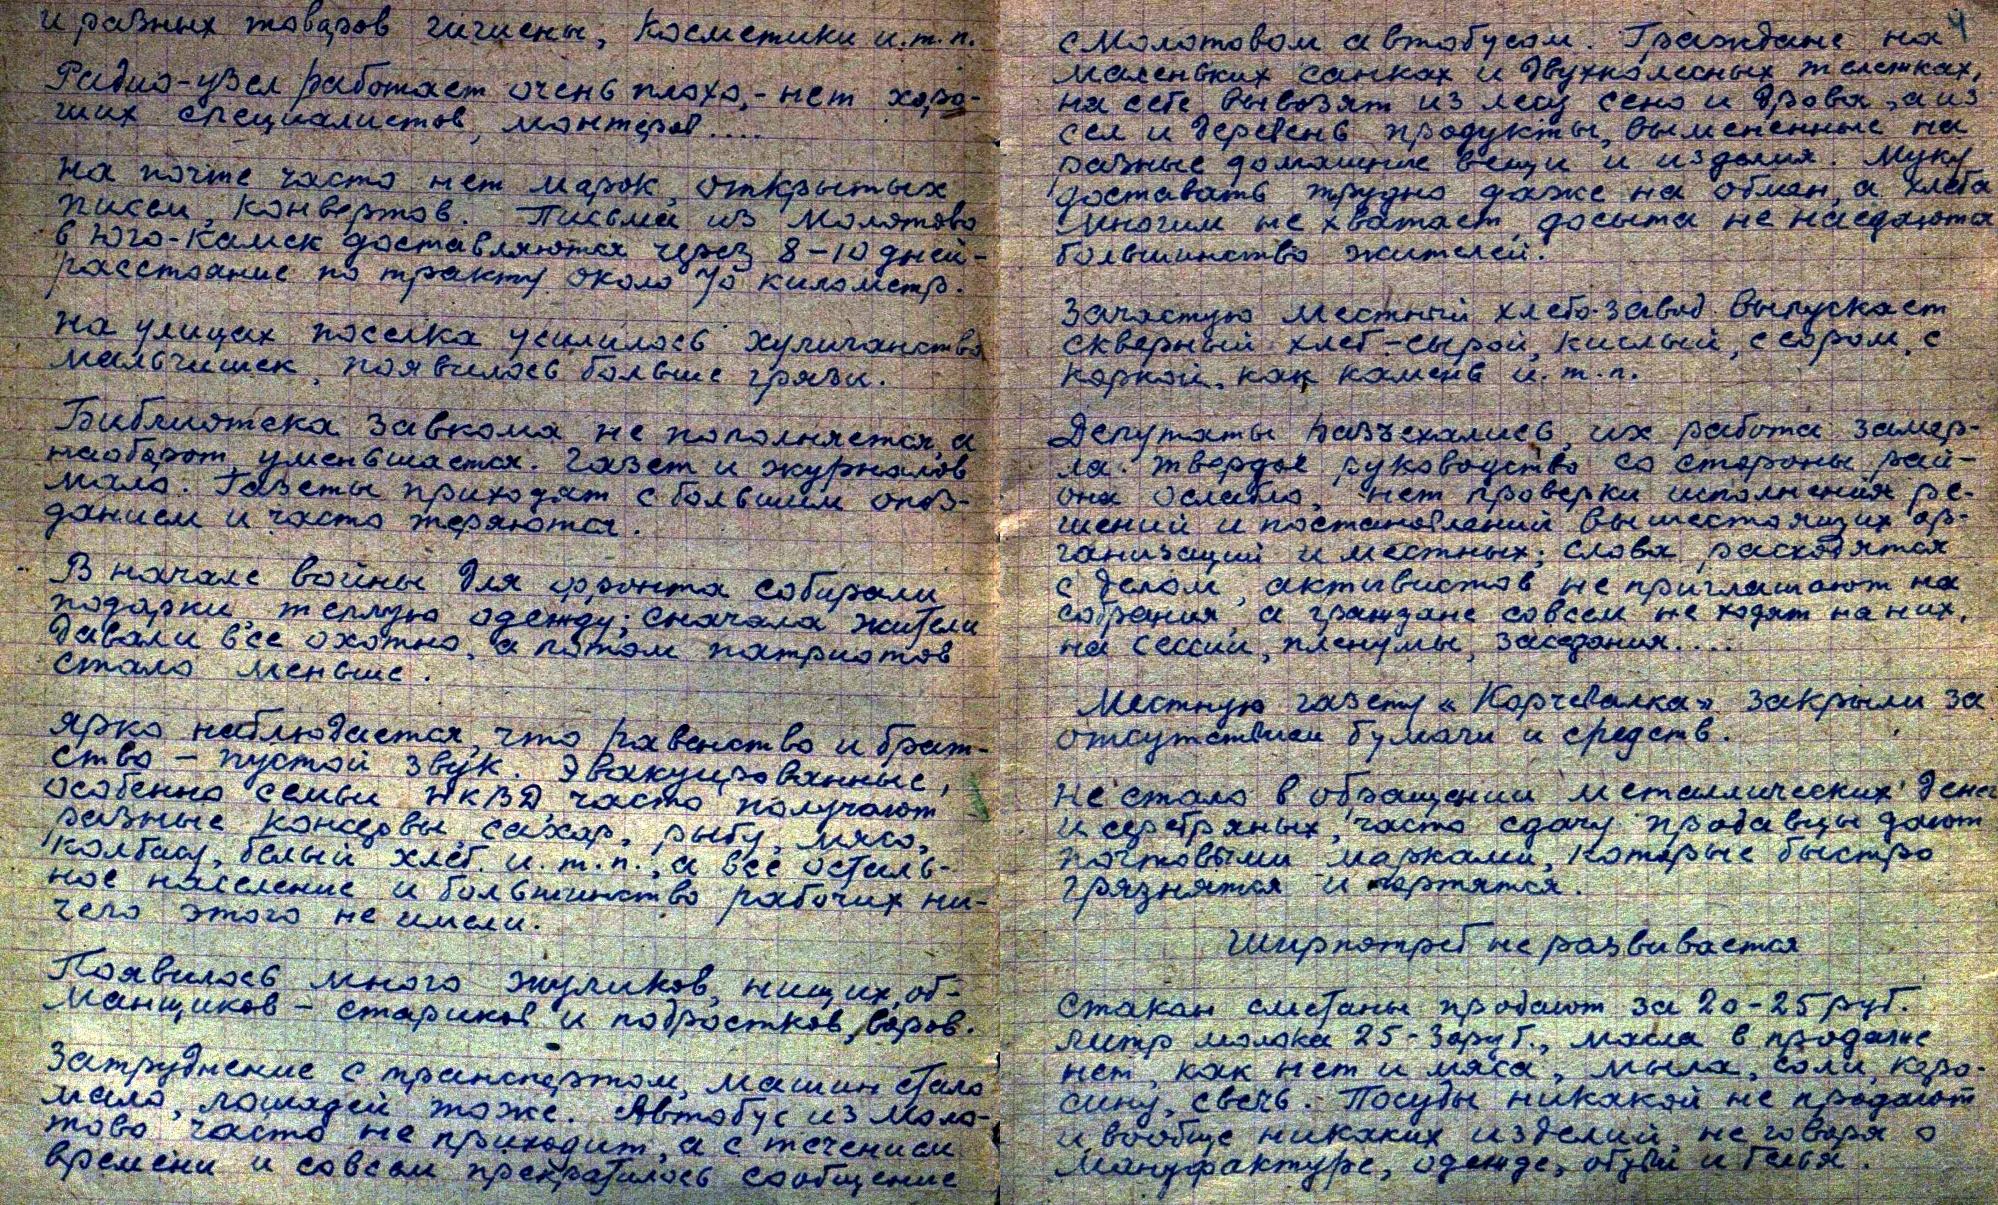 и разных товаров гигиены, косметики и.т.п.
Радио-узел работает очень плохо, - нет хоро-
ших специалистов, монтеров....
На почте часто нет марок, открытых
писем, конвертов. Письма из Молотово
в Юго-Камск доставляются через 8-10 дней -
расстояние по тракту около 70 километр.
На улицах поселка усилилось хулиганство
мальчишек, появилось больше грязи.
Библиотека завкома не пополняется, а
наоборот уменьшается. Газет и журналов
мало. Газеты приходят с большим опоз-
данием и часто теряются.
В начале войны для фронта собирали
подарки, теплую одежду; сначала жители
давали все охотно, а потом патриотов
стало меньше.
Ярко наблюдается, что равенство и брат-
ство - пустой звук. Эвакуированные,
особенно семьи НКВД часто получают
разные консервы, сахар, рыбу, мясо,
колбасу, белый хлеб и.т.п., а все осталь-
ное население и большинство рабочих ни-
чего этого не имели.
Появилось много жуликов, нищих, об-
манщиков - стариков и подростков, воров.
Затруднение с транспортом, машин стало
мало, лошадей тоже. Автобус из Моло-
тово часто не приходит, а с течением
времени и совсем прекратилось сообщение
4
с Молотовом автобусом. Граждане на
маленьких санках и двухколесных тележках,
на себе вывозят из лесу сено и дрова, а из
сел и деревень продукты, вымененные на
разные домашние вещи и изделия. Муку
доставать трудно даже на обмен, а хлеба
многим не хватает, досыта не наедаются
большинство жителей.
Зачастую местный хлебо-завод выпускает
скверный хлеб - сырой, кислый, с сором, с
коркой, как камень и.т.п.
Депутаты разъехались, их работа замер-
ла. Твердое руководство со стороны рай-
она ослабло, нет проверки исполнения ре-
шений и постановлений вышестоящих ор-
ганизаций и местных; слова расходятся
с делом, активистов не приглашают на
собрания, а граждане совсем не ходят на них,
на сессии, пленумы, заседания....
Местную газету "Корчевалка" закрыли за
отсутствием бумаги и средств.
Не стало в обращении металлических денег
и серебряных, часто сдачу продавцы дают
почтовыми марками, которые быстро
грязнятся и портятся.
Ширпотреб не развивается
Стакан сметаны продают за 20-25 руб.
литр молока 25-30 руб., масла в продаже
нет, как нет и мяса, мыла, соли, керо-
сину, свечь. Посуды никакой не продают
и вообще никаких изделий, не говоря о
мануфактуре, одежде, обуви и белья.